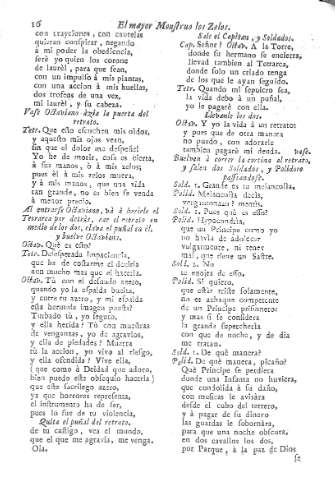 16
El mayor Monstruo los Zelos.
con trayciones, con cautelas
quieran conspirar, negando
à mi poder la obediencia,
serè yo quien los corone
de laurèl, para que sean,
con un impulso à mis plantas,
con una accion à mis huellas,
dos trofeos de una vez,
mi laurèl, y su cabeza.
Vase Octaviano àzia la puerta del
retrato.
Tetr. Que esto escuchen mis oidos,
y aquesto mis ojos vean,
sin que el dolor me despeñe!
Yo he de morir, cosa es cierta,
à sus manos, ò à mis zelos;
pues èl à mis zelos muera,
y à mis manos, que una vida
tan grande, no es bien se venda
à menor precio.
Al entrarse Octaviano, và à herirle el
Tetrarca por detràs, cae el retrato en
medio de los dos, clava el puñal en èl,
y buelve Octaviano.
Octav. Què es esto?
Tetr. Desesperada impaciencia,
que ha de costarme el decirlo
aun mucho mas que el hacerla.
Octav. Tù con el desnudo acero,
quando yo la espalda buelta,
y entre tu acero, y mi espalda
esta hermosa imagen puesta?
Turbado tù, yo seguro,
y ella herida? Tù con muestras
de venganzas, yo de agravios,
y ella de piedades? Muerta
tù la accion, yo vivo al riesgo,
y ella ofendida? Vive ella,
(que como à Deidad que adora,
bien puedo este obsequio hacerla)
que este sacrilego acero,
ya que horrores representa,
el instrumento ha de ser,
pues lo fue de tu violencia,
Quita el puñal del retrato.
de tu castigo, vea el mundo,
que el que me agravia, me venga.
Ola.
Sale el Capitan, y Soldados.
Cap. Señor? Octav. A la Torre,
donde su hermano se encierra,
llevad tambien al Tetrarca,
donde solo un criado tenga
de los que le ayan seguido.
Tetr. Quando mi sepulcro sea,
la vida debo à un puñal,
yo le pagarè con ella.
Llevanle los dos.
Octav. Y yo la vida à un retrato;
y pues que de otra manera
no puedo, con adorarle
tambien pagarè mi deuda. vase.
Buelven à correr la cortina al retrato,
y salen dos Soldados, y Polidoro
passeandose.
Sold. 1. Grande es tu melancolia.
Polid. Melancolia dixiste?
vergonzosos? mentis.
Sold. 1. Pues què es esso?
Polid. Hypocondria,
que un Principe como yo
no havia de adolecer
vulgarmente, ni tener
mal, que tiene un Sastre.
Sold. 2. No
te enojes de esso.
Polid. Si quiero,
que estàr triste solamente,
no es achaque competente
de un Principe prisionero;
y mas si se considera
la grande supercheria
con que de noche, y de dia
me tratan.
Sold. 1. De què manera?
Polid. De què manera, picaño?
Què Principe se perdiera
donde una Infanta no huviera,
que condolida à su daño,
con musicas le avisàra
desde el cubo del terrero,
y à pagar de su dinero
las guardas le sobornàra,
para que una noche obscura,
en dos cavallos los dos,
por Parque, à la paz de Dios
se